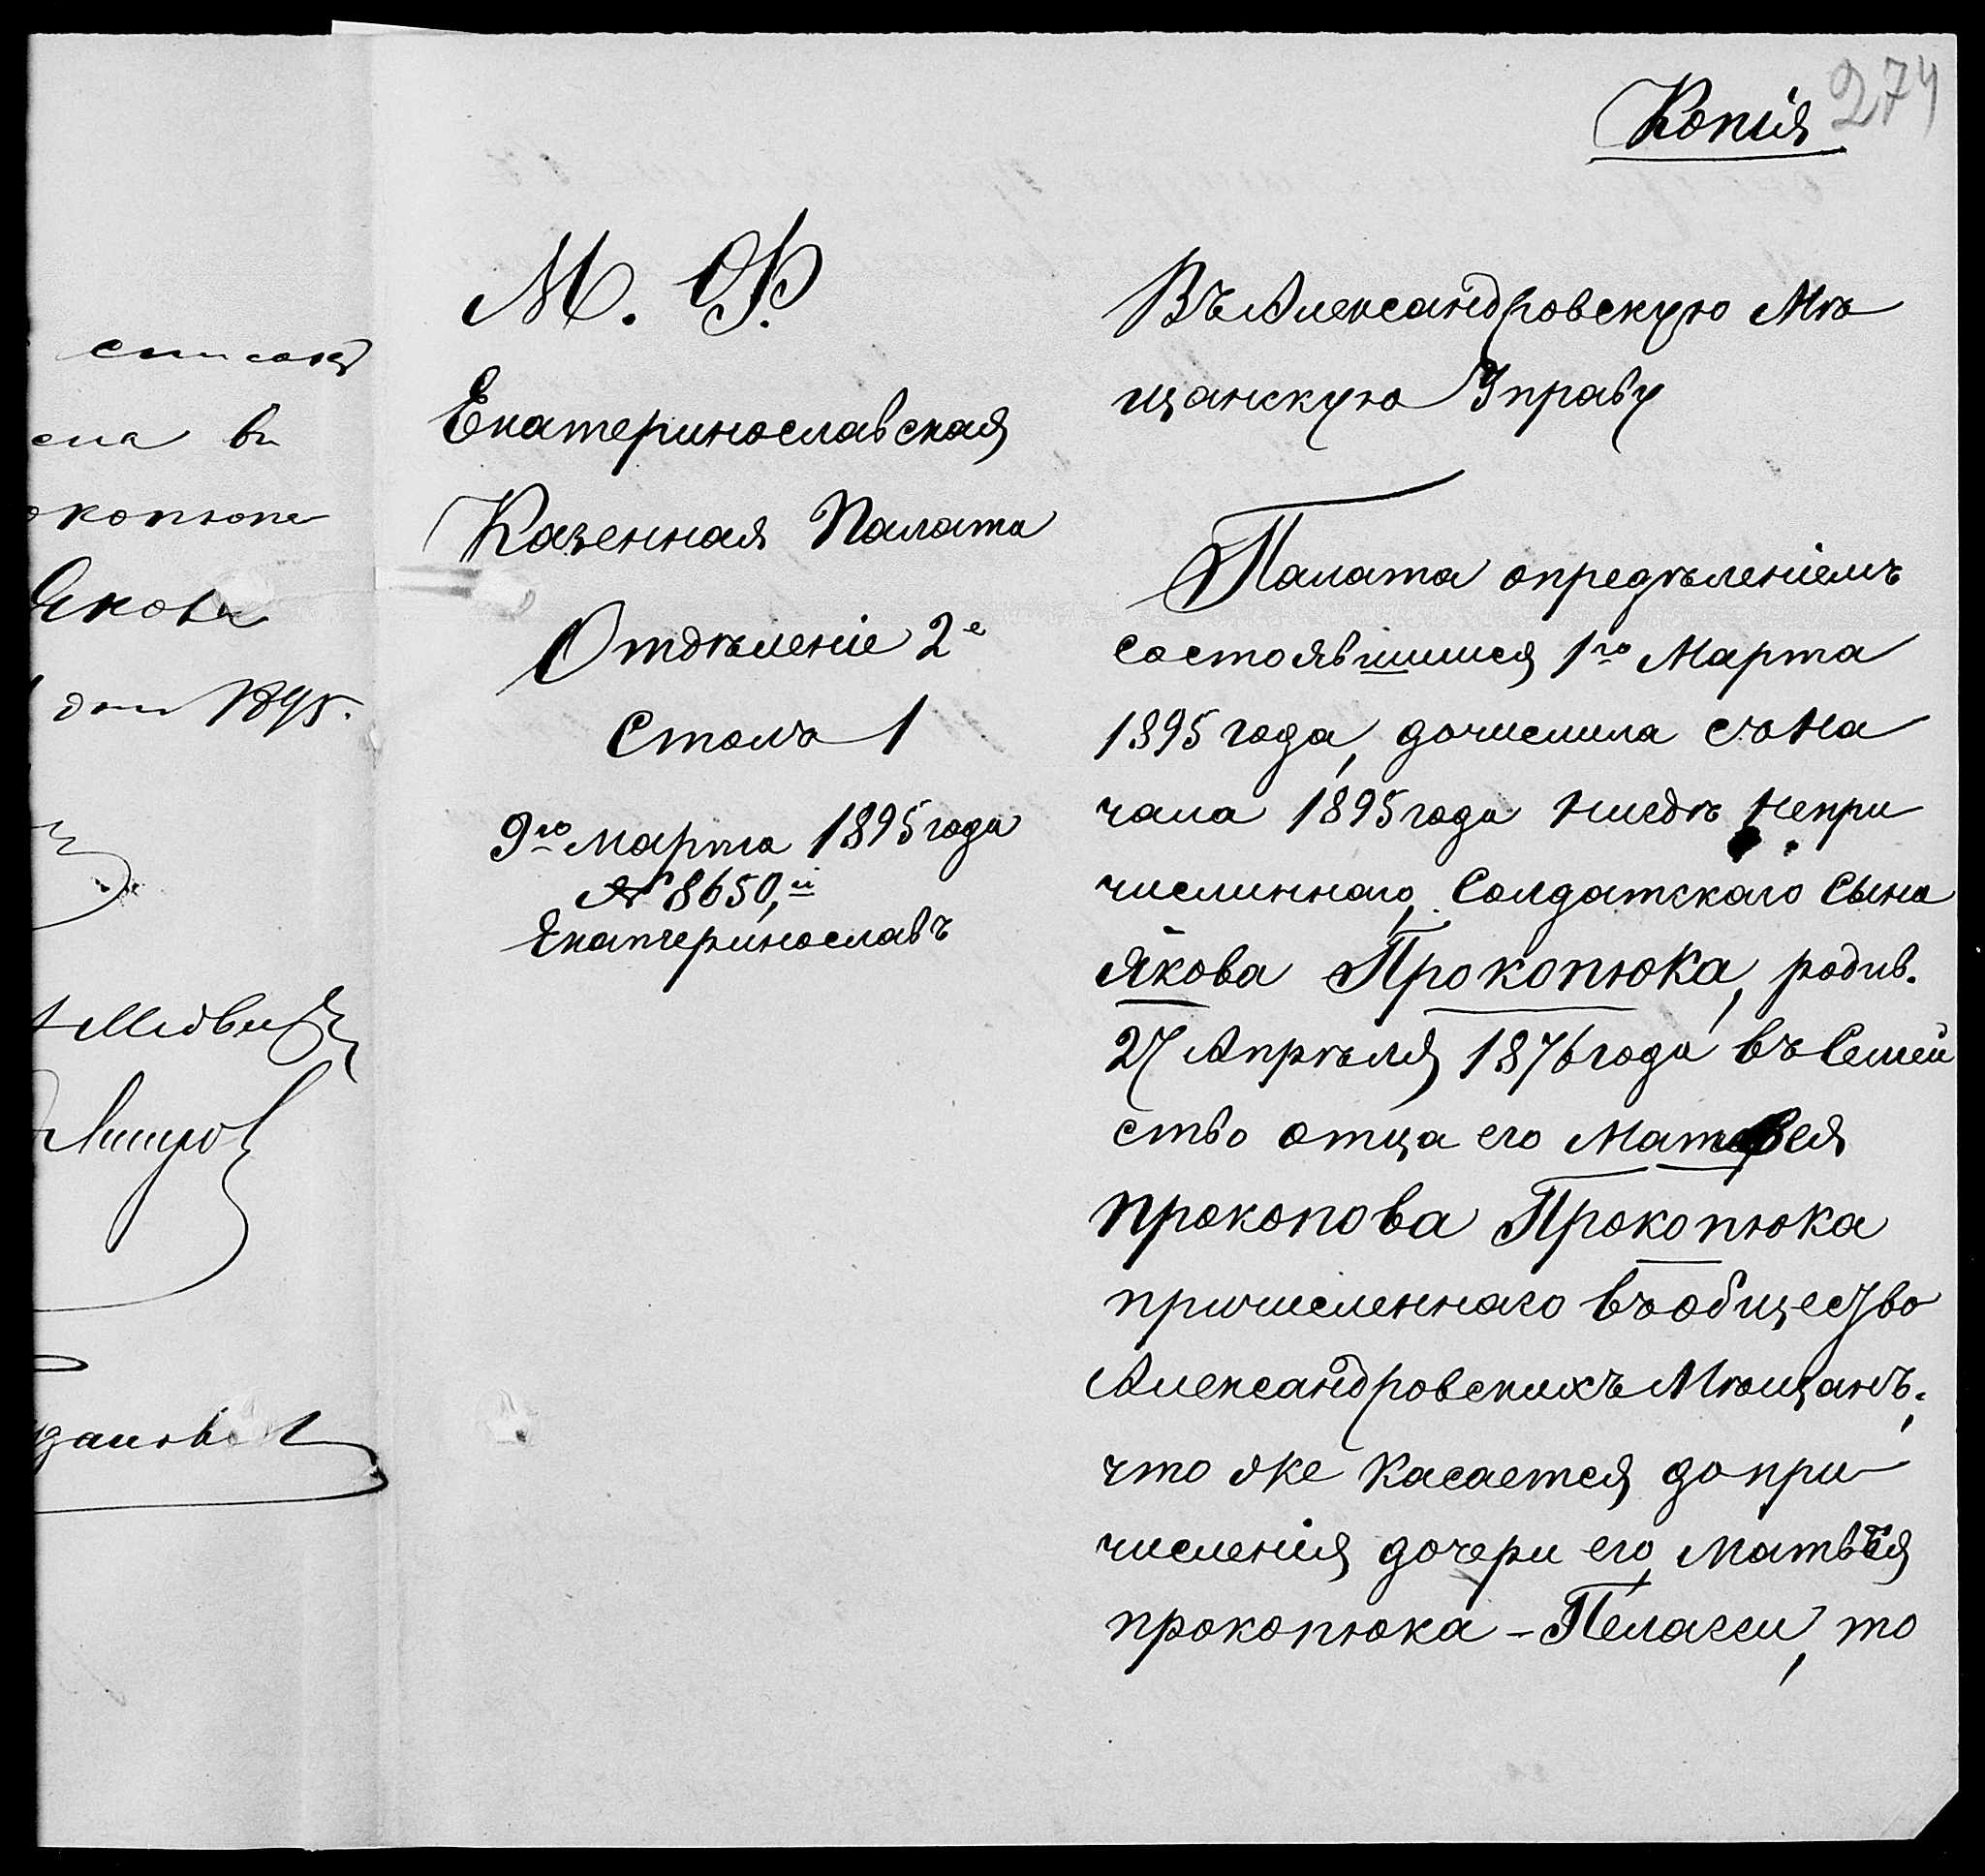 Копія
274
М. Ф.
Екатеринославская
Казенная Палата
Отдѣленіе 2е
Столъ 1
9го Марта 1895 года
№ 8650,й
Екатеринославъ
Въ Александровскую Мѣ
щанскую Управу
Палата опредѣленіемъ
состоявшимся 1го Марта
1895 года, дочислила съ На
чала 1895 года нигдѣ непри
численнаго, Солдатскаго Сына
Якова Прокопюка, родив.
27 Апрѣля 1876 года въ Семей
ство отца его Матвея
Прокопова Прокопюка
причисленнаго въ общество
Александровскихъ Мѣщанъ;
что же касается до при
численія дочери его, Матвѣя
Прокопюка - Пелагеи, то
ена въ
окопюка
Якова
дня 1895.